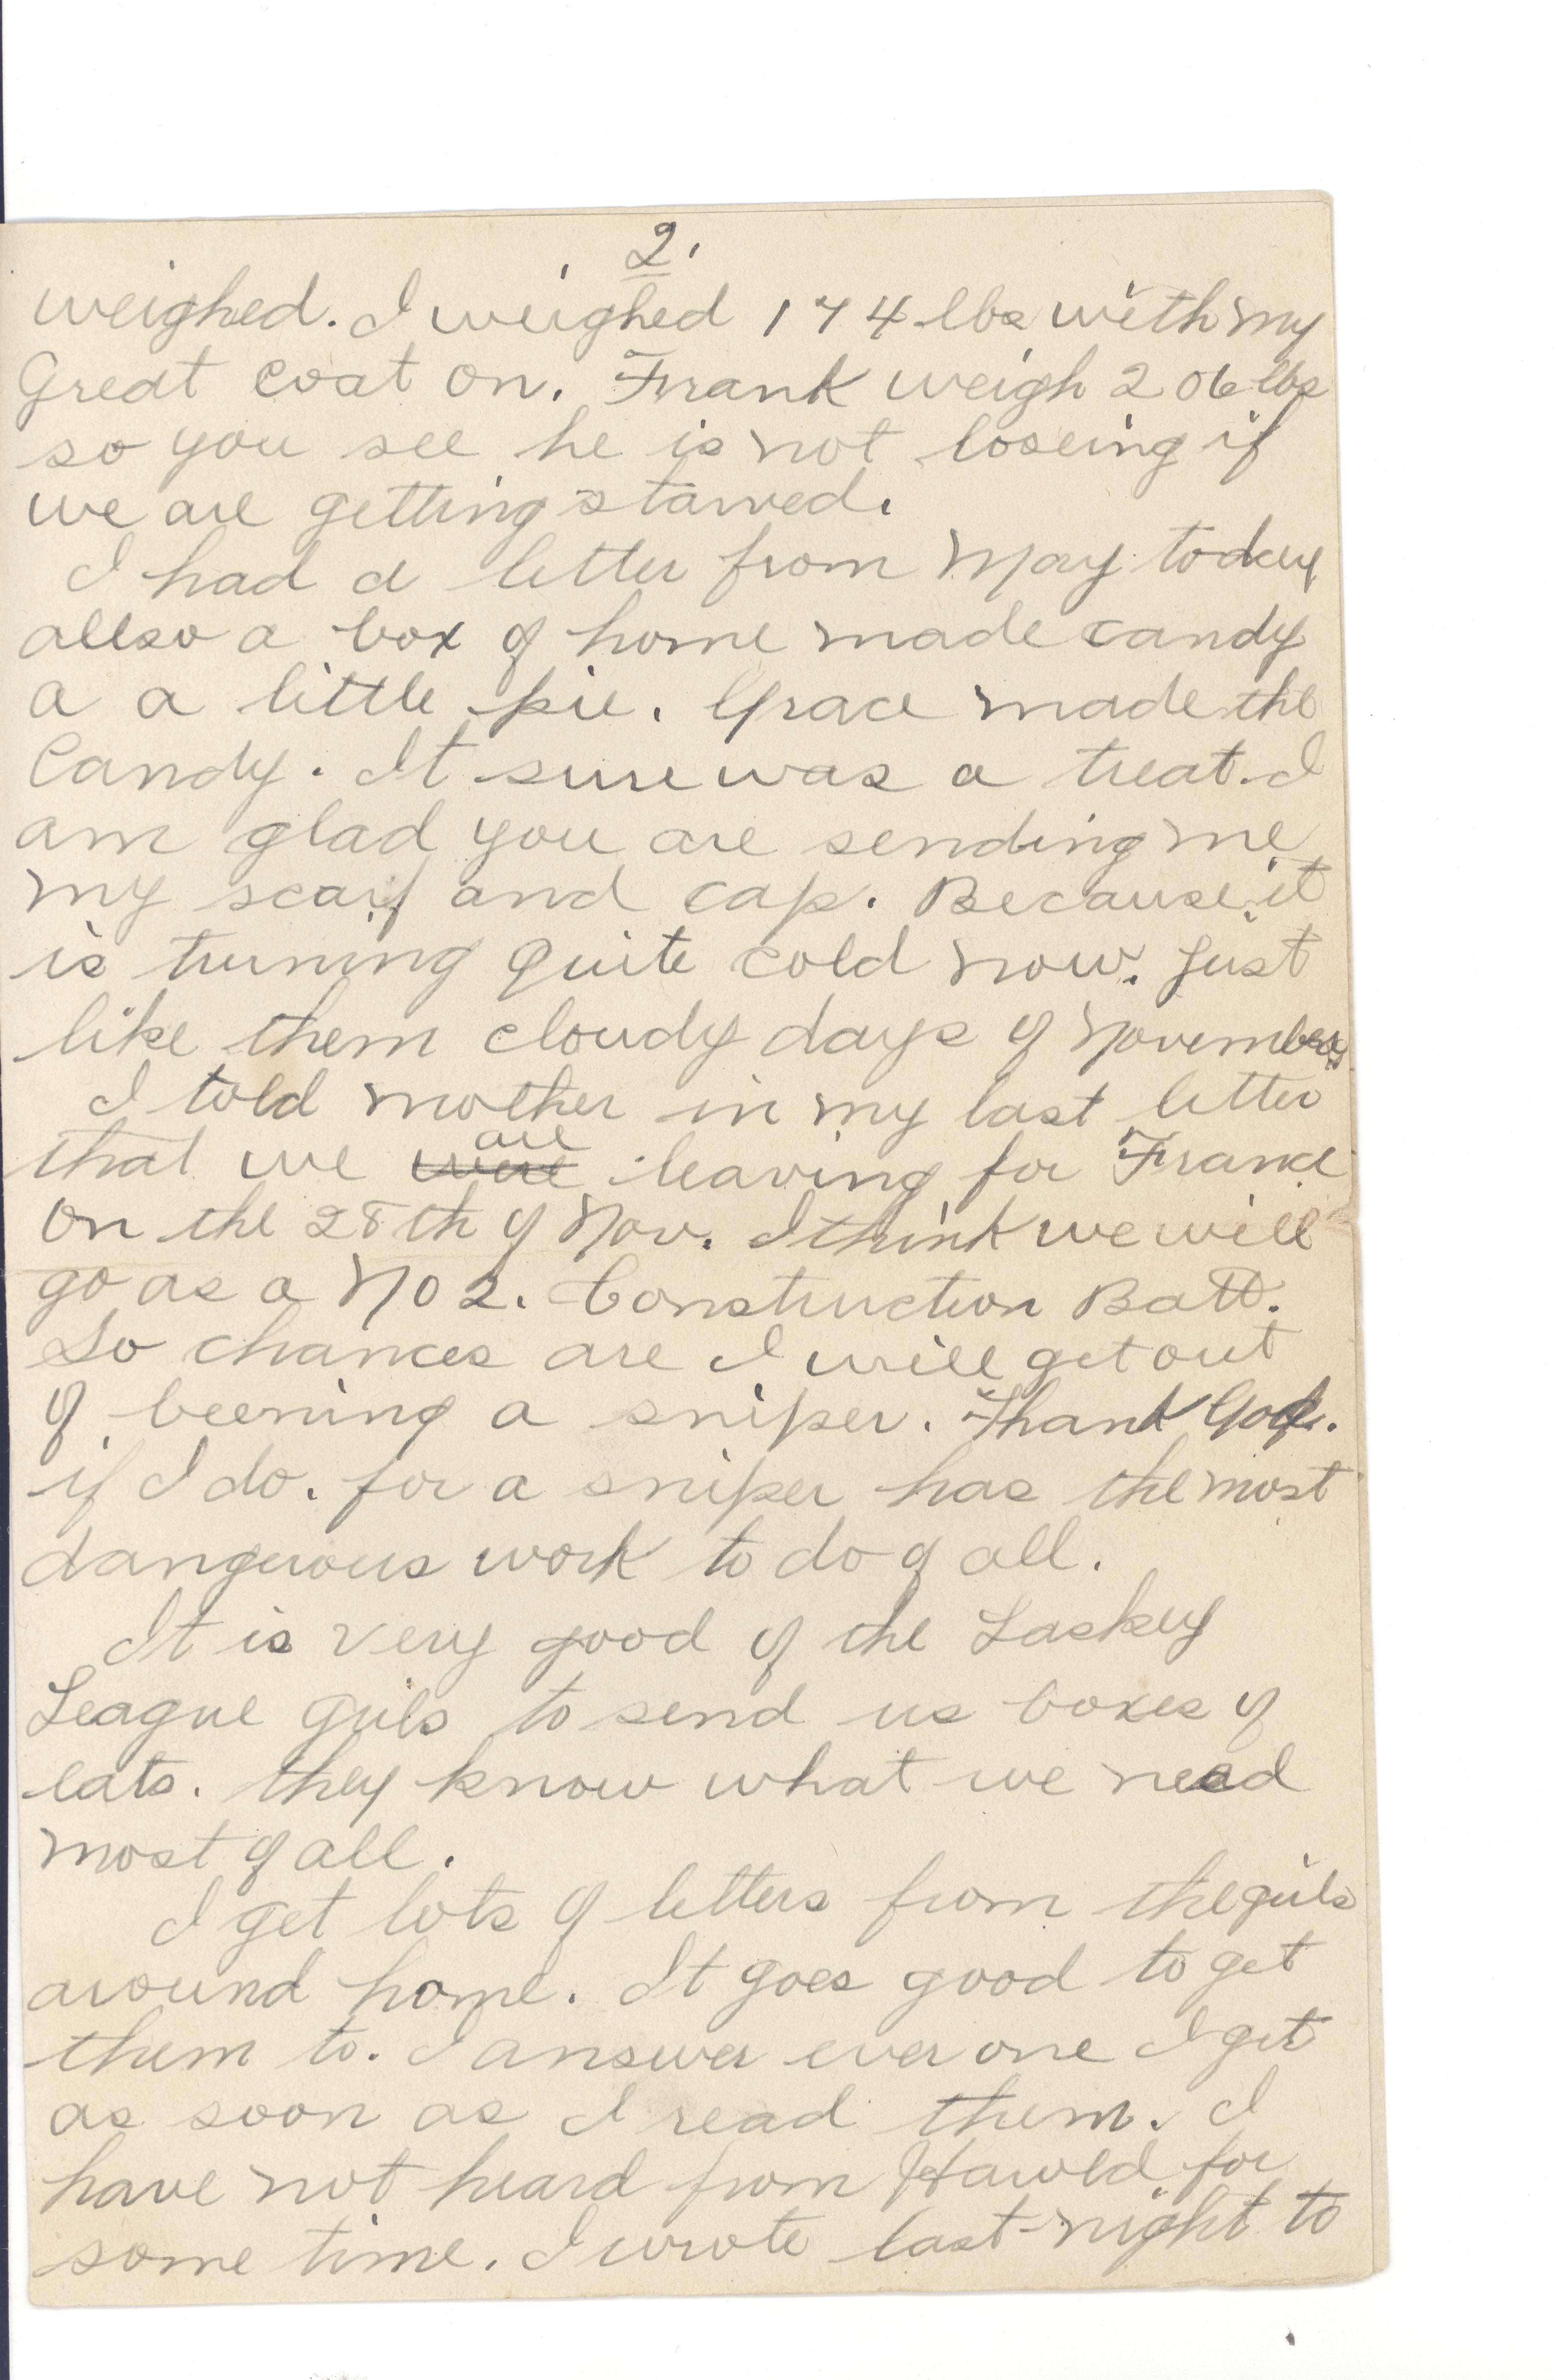 2.
weighed. I weighed 174 lbs with my
Great coat on. Frank weigh 206 lbs
so you see he is not loseing if
we are getting starved.
I had a letter from May today
allso a box of home made candy
a a little pie. Grace made the
Candy. It sure was a treat. I
am glad you are sending me
my scarf and cap. Because it
is turning quite cold now. Just
like them cloudy days of November
I told mother in my last letter
that we were are leaving for France
on the 28th of Nov. I think we will
go as a No 2. Construction Batt.
So chances are I will get out
of beening a sniper. Thank God.
if I do. for a sniper has the most
dangerous work to do of all.
It is very good of the Laskey
League girls to send us boxes of
eats. they know what we need
most of all.
I get lots of letters from the girls
around home. It goes good to get
them to. I answer ever one I get
as soon as I read them. I
have not heard from Harold for
some time. I wrote last night to